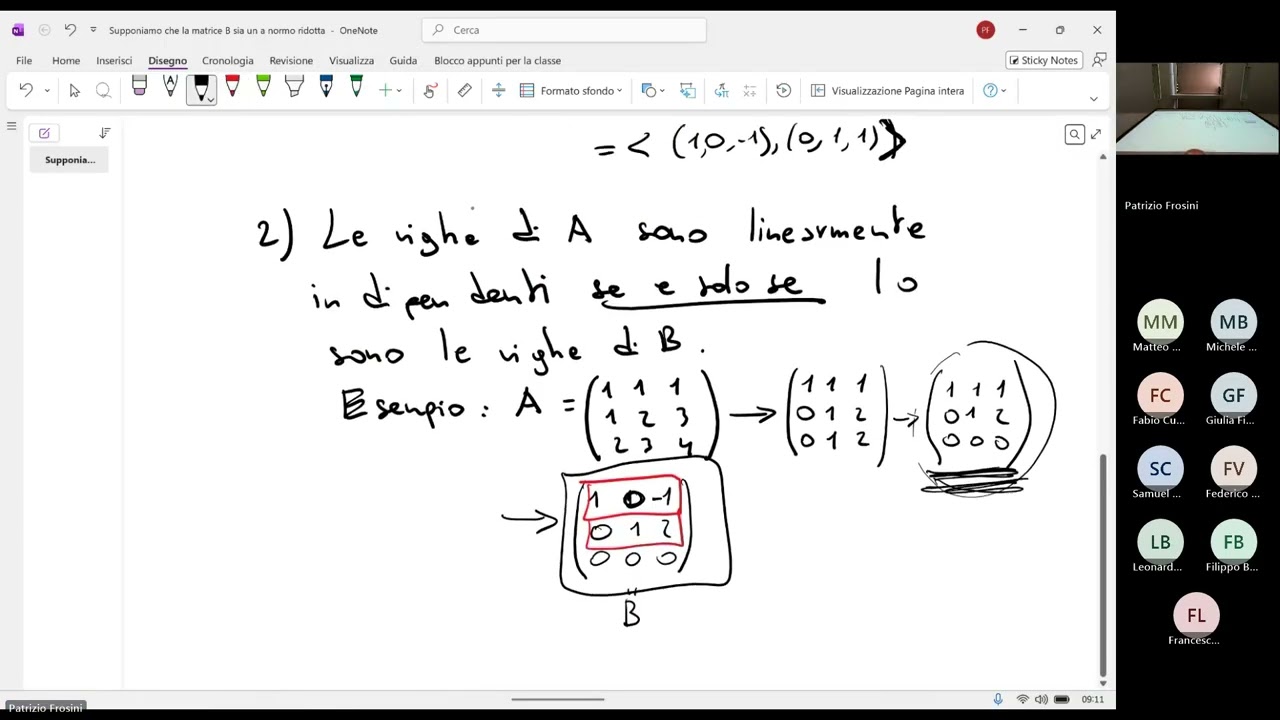 Supponiamo che la matrice B sia un a normo ridotta - OneNote
Cerca
PF
File Home Inserisci Disegno Cronologia Revisione Visualizza Guida Blocco appunti per la classe
Sticky Notes
Formato sfondo
Visualizzazione Pagina intera
Supponia...
= < (1,0,-1), (0, 1, 1)>
2) Le righe di A sono linearmente
indipendenti se e solo se lo
sono le righe di B.
Esempio: A = (1 1 1 → (1 1 1 → (1 1 1
1 2 3 0 1 2 0 1 2
2 3 4) 0 1 2) 0 0 0)
→ (1 0 -1
0 1 2
0 0 0)
=
B
Patrizio Frosini
MM MB
Matteo ... Michele ...
FC GF
Fabio Cu... Giulia Fi...
SC FV
Samuel ... Federico ...
LB FB
Leonard... Filippo B...
FL
Francesc...
09:11
Patrizio Frosini